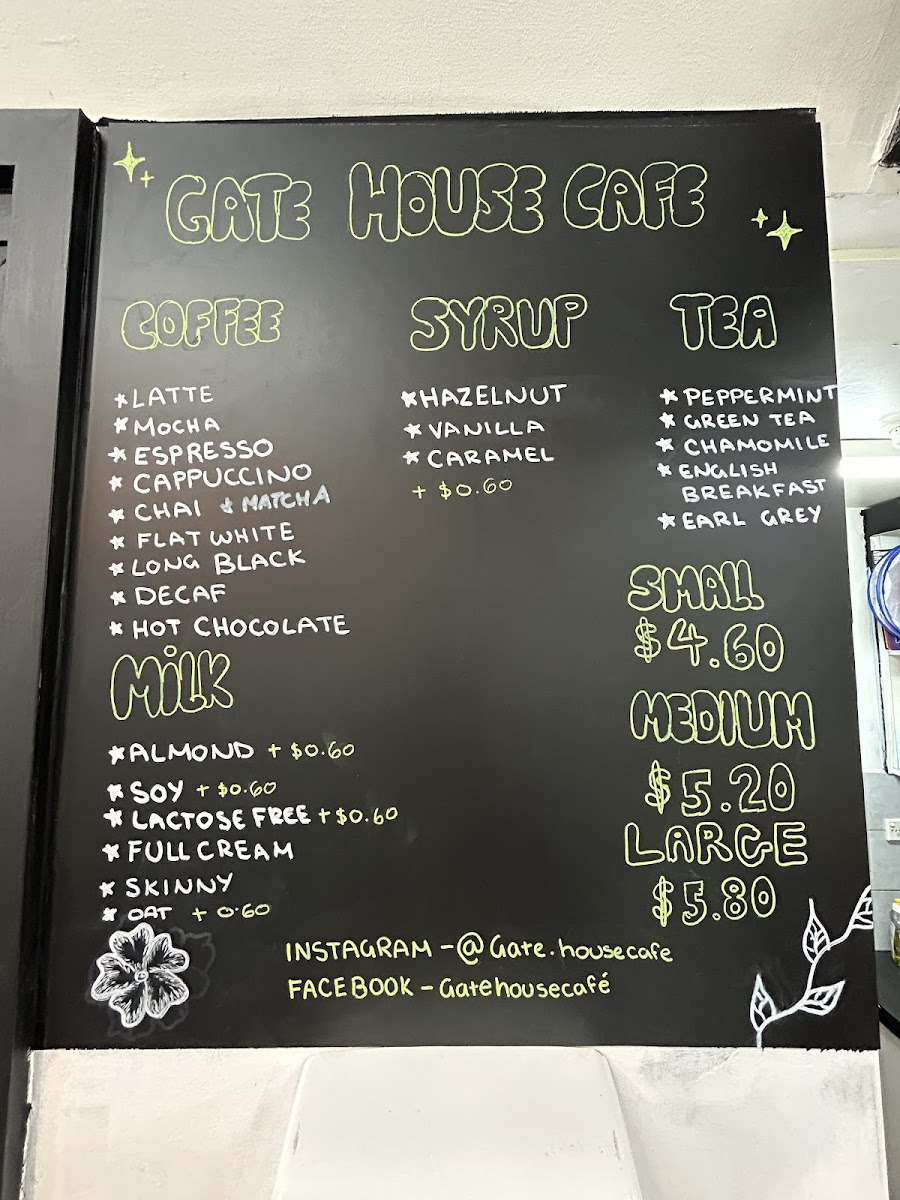 GATE HOUSE CAFE
COFFEE
LATTE
MOCHA
ESPRESSO
CAPPUCCINO
CHAI MATCHA
FLAT WHITE
LONG BLACK
DECAF
HOT CHOCOLATE
MiLK
ALMOND + $0.60
SOY + $0.60
LACTOSE FREE + $0.60
FULL CREAM
SKINNY
OAT + 0.60
SYRUP
HAZELNUT
VANILLA
CARAMEL
+ $0.60
TEA
PEPPERMINT
GREEN TEA
CHAMOMILE
ENGLISH
BREAKFAST
EARL GREY
SMALL
$4.60
MEDIUM
$5.20
LARGE
$5.80
INSTAGRAM - @Gate.housecafe
FACEBOOK - Gatehousecafé